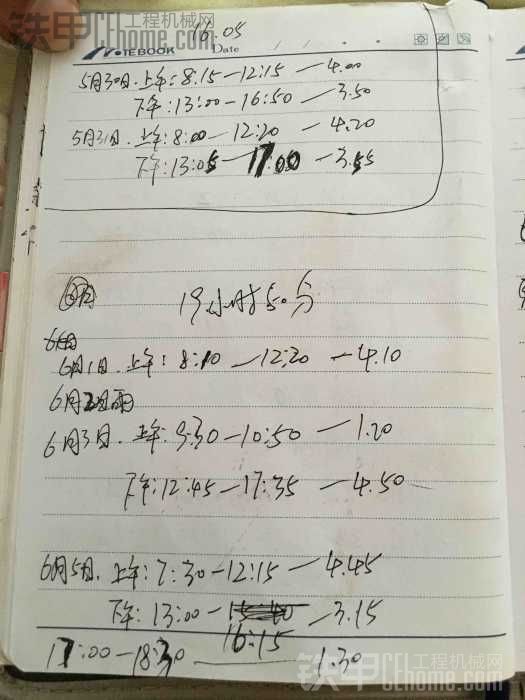 铁甲工程机械网
cehome.com
NOTEBOOK 16.05 Date
5月30日.上午:8:15—12:15—4.00
下午:13:00—16:50—3.50
5月31日.上午:8:00—12:20—4.20
下午:13:05—17:00—3.55
19小时50分
6月1日.上午:8:10—12:20—4.10
6月2日雨
6月3日.上午:9:30—10:50—1.20
下午:12:45—17:35—4.50
6月5日.上午:7:30—12:15—4.45
下午:13:00—16:15—3.15
17:00—18:30—1.30
铁甲工程机械网
cehome.com